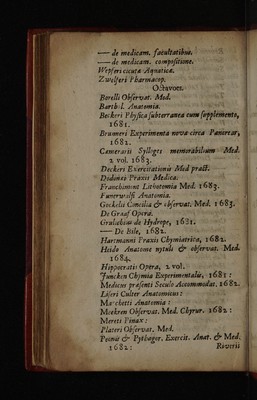 — de medicam. facultatibus.
— de medicam. compositione.
Wepferi cicuta Aquatica.
Zwelferi Pharmacop.
Octavoes.
Borelli Observat. Med.
Barthol. Anatomia.
Becheri Physica subterranea cum supplemento,
1681.
Brunneri Experimenta nova circa Pancreat,
1682.
Camerarii Sylloges memorabilium Med.
2 vol. 1683.
Deckeri Exercitationis Med pract.
Dodonei Praxis Medica.
Franchimont Lithotomia Med. 1683.
Anatomia.
Gockelii Concilia & observat. Med. 1683.
De Graaf Opera.
de Hydrope, 1681.
— De Bile, 1682.
Hartmanni Praxis Chymiatrica, 1682.
Heide Anatome mytuli & observat. Med.
1684.
Hippocratis Opera, 2 vol.
Juncken Chymia Experimentalis, 1681:
Medicus præsenti Seculo Accommodat. 1682.
Liseri Culter Anatomicus:
Marchetti Anatomia:
Meekren Observat. Med. Chyrur. 1682:
Mereti Pinax:
Plateri Observat. Med.
& Pythagor. Exercit. Anat. & Med.
1682: Riverii